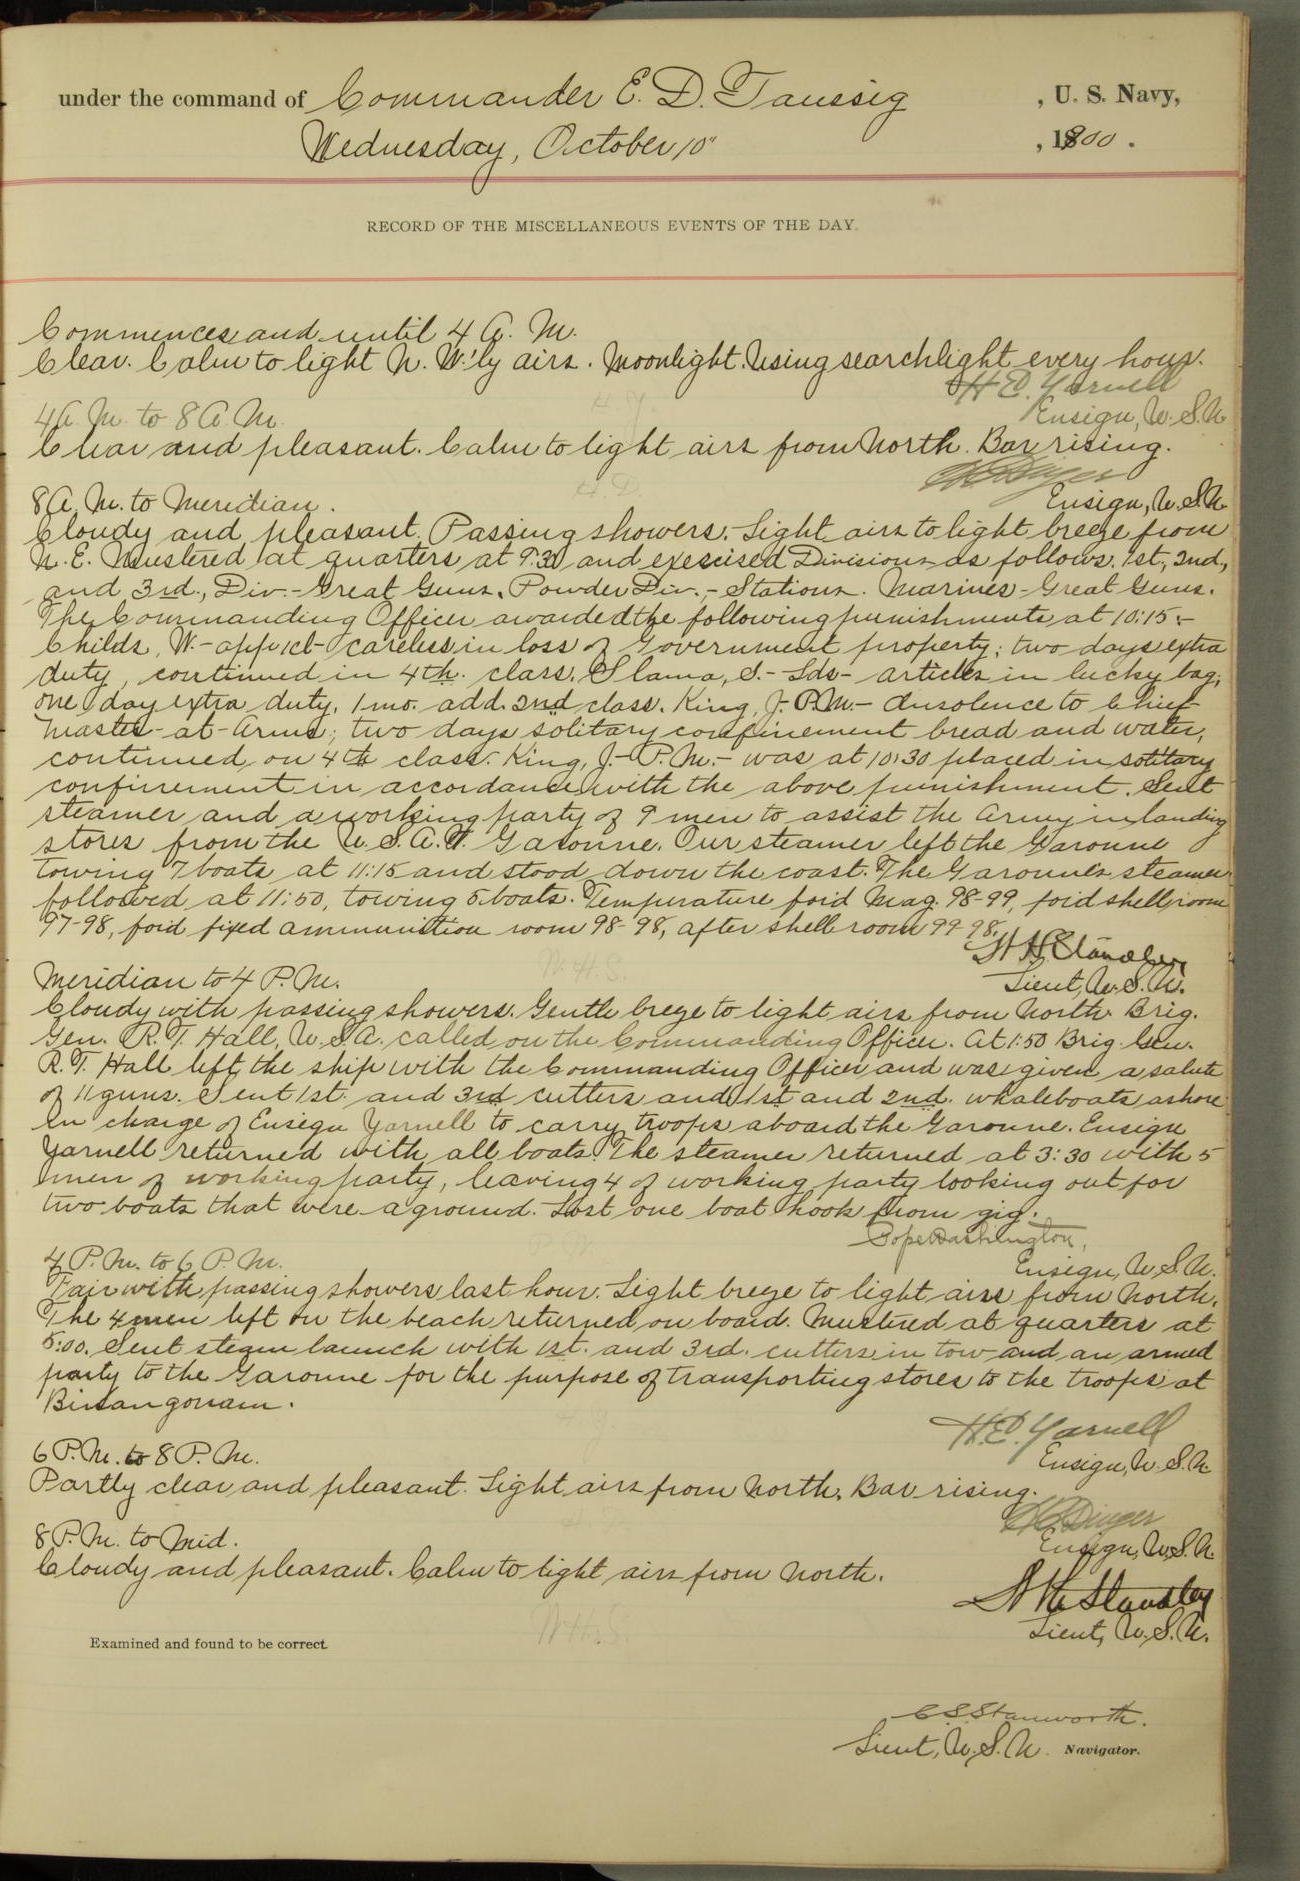 under the command of Commander E. D. Taussig , U. S. Navy,
Wednesday, October 10" , 1900.
RECORD OF THE MISCELLANEOUS EVENTS OF THE DAY.
Commences and until 4 A. M.
Clear. Calm to light N. W'ly airs. Moonlight. Using searchlight every hour.
H E. Yarnell
Ensign, U. S. N.
4 A. M. to 8 A. M.
Clear and pleasant. Calm to light airs from North. Bar rising.
Ensign, U. S. N.
8 A. M. to Meridian.
Cloudy and pleasant. Passing showers. Light airs to light breeze from
N. E. Mustered at quarters at 9:30 and exercised Divisions as follows. 1st, 2nd,
and 3rd., Div.- Great Guns. Powder Div.,- Stations. Marines - Great Guns.
The Commanding Officer awarded the following punishments at 10:15:-
Childs, W.- app 1cl- careless in loss of Government property; two days extra
duty, continued in 4th. class. Slama, S.- Lds- articles in lucky bag;
one day extra duty, 1 mo. add. 2nd class. King, J.- P.M.- Insolence to Chief
Master-at-Arms; two days solitary confinement bread and water,
continued on 4th class. King, J.- P.M.- was at 10:30 placed in solitary
confinement in accordance with the above punishment. Sent
steamer and a working party of 9 men to assist the Army in landing
stores from the U. S. A. T. Garonne. Our steamer left the Garonne
towing 7 boats at 11:15 and stood down the coast. The Garonne's steamer
followed at 11:50, towing 5 boats. Temperature for'd Mag. 98-99, for'd shell room
97-98, for'd fixed ammunition room 98-98, after shell room 99-98.
W H Standley
Lieut, U. S. N.
Meridian to 4 P. M.
Cloudy with passing showers. Gentle breeze to light airs from North. Brig.
Gen. R. T. Hall, U. S. A. called on the Commanding Officer. At 1:50 Brig. Gen.
R. T. Hall left the ship with the Commanding Officer and was given a salute
of 11 guns. Sent 1st. and 3rd cutters and 1st and 2nd. whaleboats ashore
in charge of Ensign Yarnell to carry troops aboard the Garonne. Ensign
Yarnell returned with all boats. The steamer returned at 3:30 with 5
men of working party, leaving 4 of working party looking out for
two boats that were aground. Lost one boat hook from gig.
Pope Washington,
Ensign, U. S. N.
4 P. M. to 6 P. M.
Fair with passing showers last hour. Light breeze to light airs from North.
The 4 men left on the beach returned on board. Mustered at quarters at
5:00. Sent steam launch with 1st. and 3rd. cutters in tow and an armed
party to the Garonne for the purpose of transporting stores to the troops at
H. E. Yarnell
Ensign, U. S. N.
6 P. M. to 8 P. M.
Partly clear and pleasant. Light airs from North. Bar rising.
Ensign, U. S. N.
8 P. M. to Mid.
Cloudy and pleasant. Calm to light airs from North.
W H Standley
Lieut, U. S. N.
Examined and found to be correct.
C. S. Stanworth.
Lieut, U. S. N. Navigator.